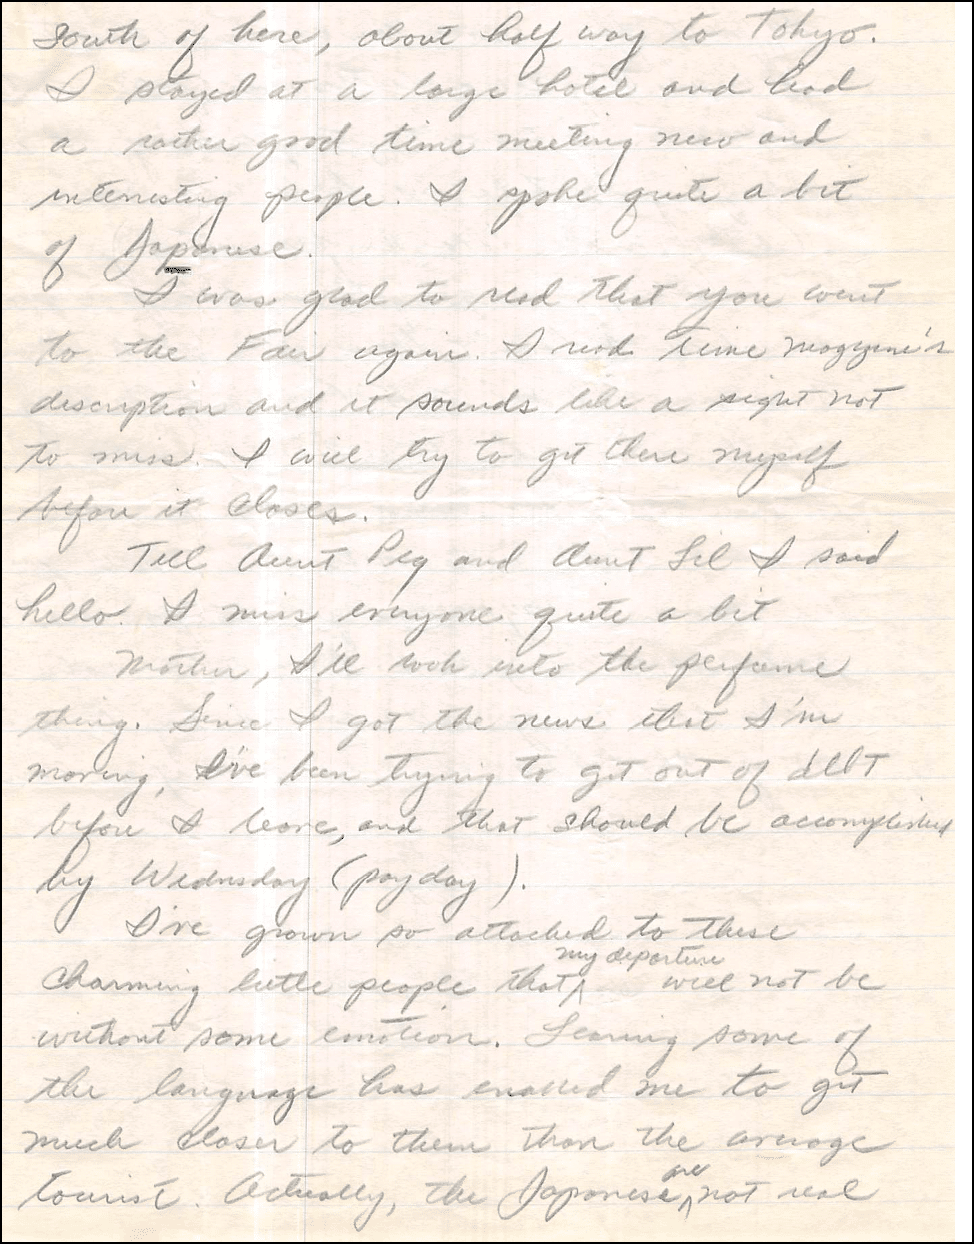 South of here, about half way to Tokyo.
I stayed at a large hotel and had
a rather good time meeting new and
interesting people. I spoke quite a bit
of Japanese.
I was glad to read that you went
to the Fair again. I read Time Magazine's
description and it sounds like a sight not
to miss. I will try to get there myself
before it closes.
Tell Aunt Peg and Aunt Lil I said
hello. I miss everyone quite a bit
Mother, I'll look into the perfume
thing. Since I got the news that I'm
moving, I've been trying to get out of debt
before I leave, and that should be accomplished
by Wednesday (payday).
I've grown so attached to these
charming little people that my departure will not be
without some emotion. Learning some of
the language has enabled me to get
much closer to them than the average
tourist. Actually, the Japanese are not real